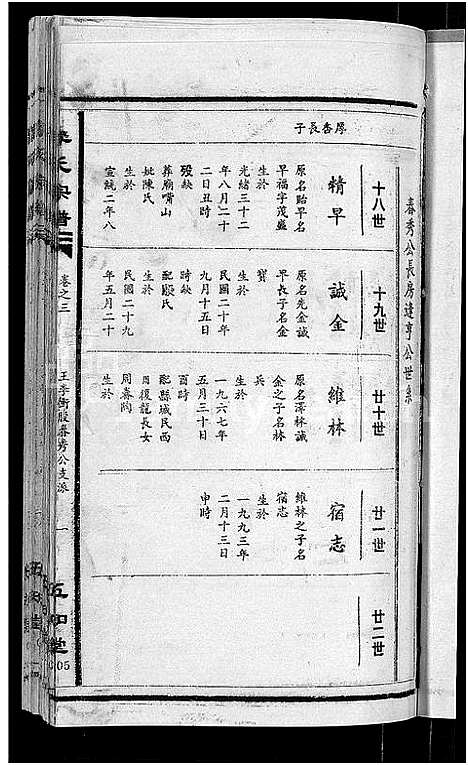 春秀公長房達亨公世系
厚杏長子
十八世
精早
原名贻早名
早福字茂盛
生於
光緒三十二
年八月二十
二日丑時
歿缺
葬廟嘴山
妣陳氏
生於
宣統二年八
十九世
誠金
原名先金誠
早長子名金
寶
生於
民國二十年
九月十五日
時缺
配殷氏
生於
民國二十九
年五月二十
廿十世
維林
原名澤林誠
金之子名林
兵
生於
一九六七年
五月三十日
酉時
配縣城民西
呂後龍長女
同春陶
生於
廿一世
宿志
維林之子名
宿志
生於
一九九三年
二月十三日
申時
廿二世
氏宗譜
卷之三
王李衝殷春秀公支派
一
五知堂
05